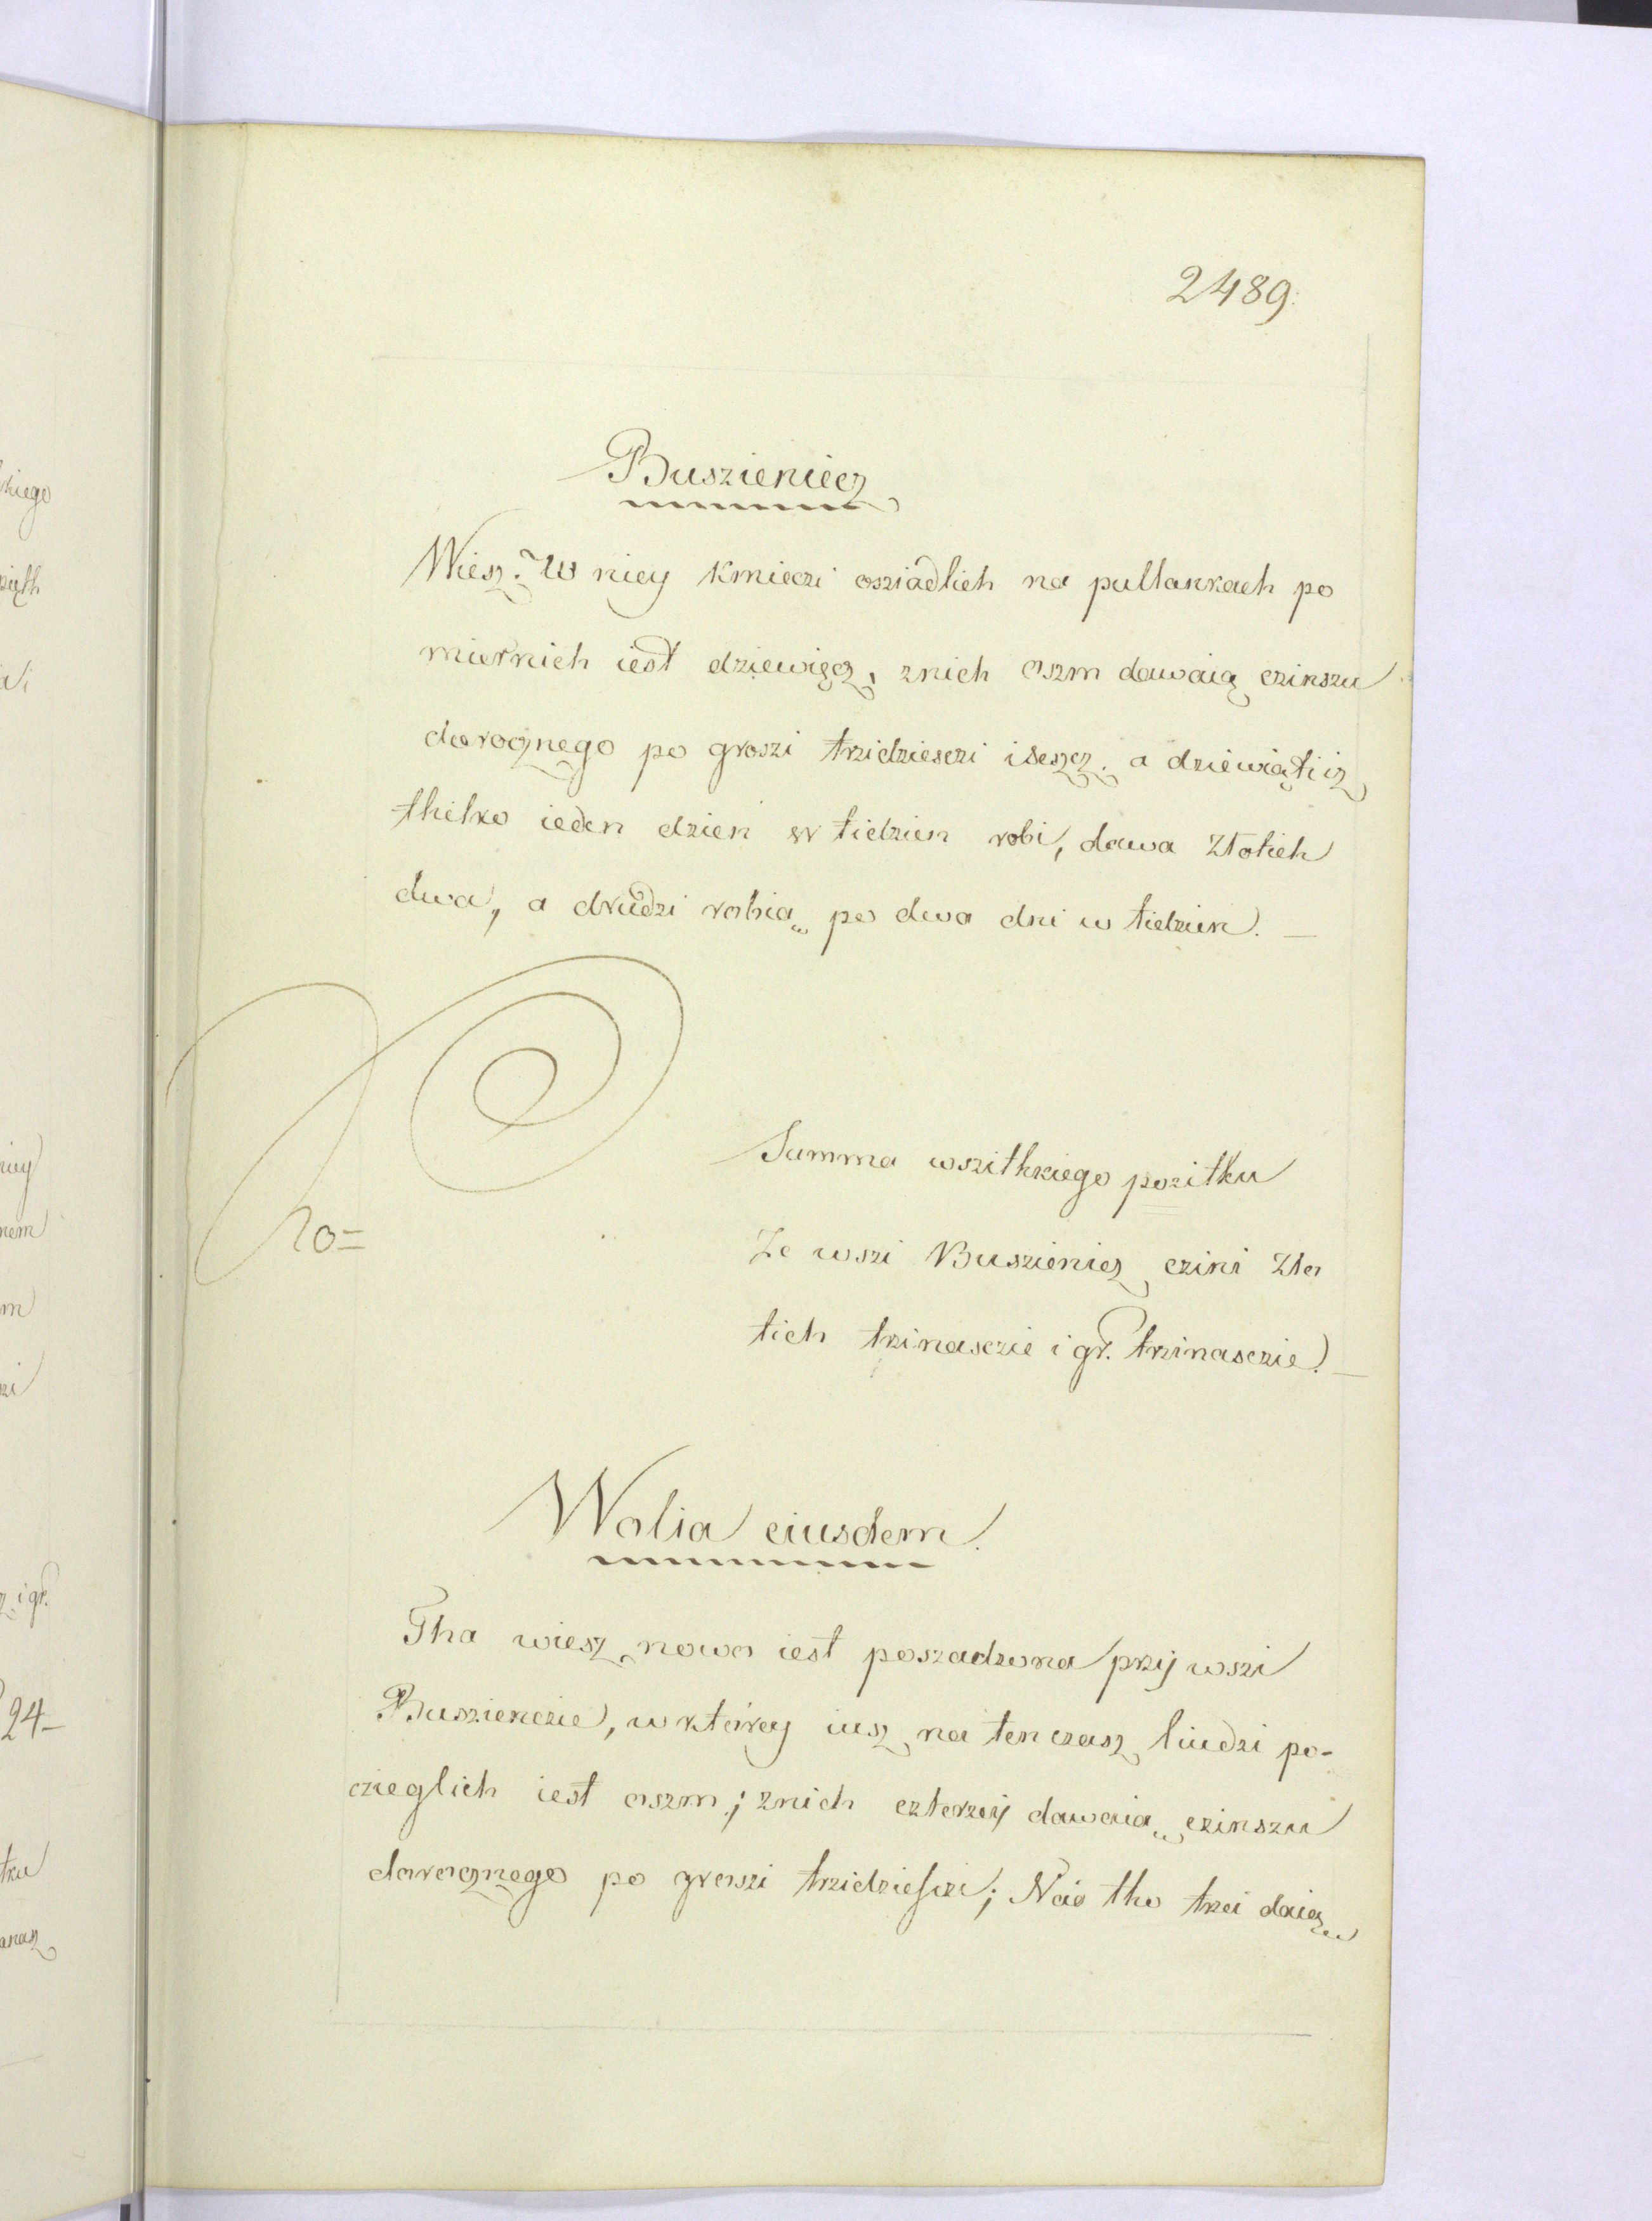 2489.
Buszieniecz
Wiesz. W niey kmieczi osziadlich na pullankach po
miernich iest dziewięcz, znich oszm dawaią czinszu
dorocznego po groszi trzidziesczi iSeszcz. a dziewiąti iz
thilko ieden dzien w tidzien robi, dawa Złotich
dwa, a drudzi robią po dwa dni w tidzien. —
Summa wszithkiego pozitku
No=
Ze wszi Buszienicz czini Zło
tich trzinasczie i gr. trzinasczie. —
Wolia eiusdem.
Tha wiesz nowo iest poszadzona przij wszi
Buszienczie, w którey iusz na ten czasz liudzi po-
czieglich iest oszm; znich czterzij dawaią czinszu
dorocznego po groszi trzidziesczi; Nad tho trzei daią